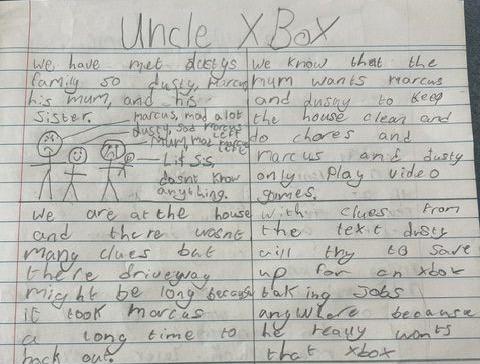 Uncle XBox
We have met dustys
family so dusty, Marcus
his mum, and his
sister.
marcus, mad a lot
dusty, sad marcus
left
mum mad marcus
left
Lit sis,
dosnt know
anything.
We are at the house
and there wasnt
many clues but
there driveway
might be long because
it took marcus
a long time to
back out.
we know that the
mum wants Marcus
and dusty to keep
the house clean and
do chores and
marcus and dusty
only play video
games.
with clues from
the text dusty
will try to save
up for an xbox
taking jobs
anywhere because
he really wants
that xbox